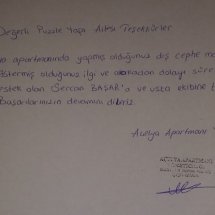 Değerli Puzzle Yapı Ailesi Teşekkürler
apartmanında yapmış olduğunuz dış cephe
göstermiş olduğunuz ilgi ve alakadan dolayı
destek olan Sercan BAŞAR'a ve usta ekibine
Başarılarınızın devamını dileriz.
Açelya Apartmanı
AÇELYA APARTMANI